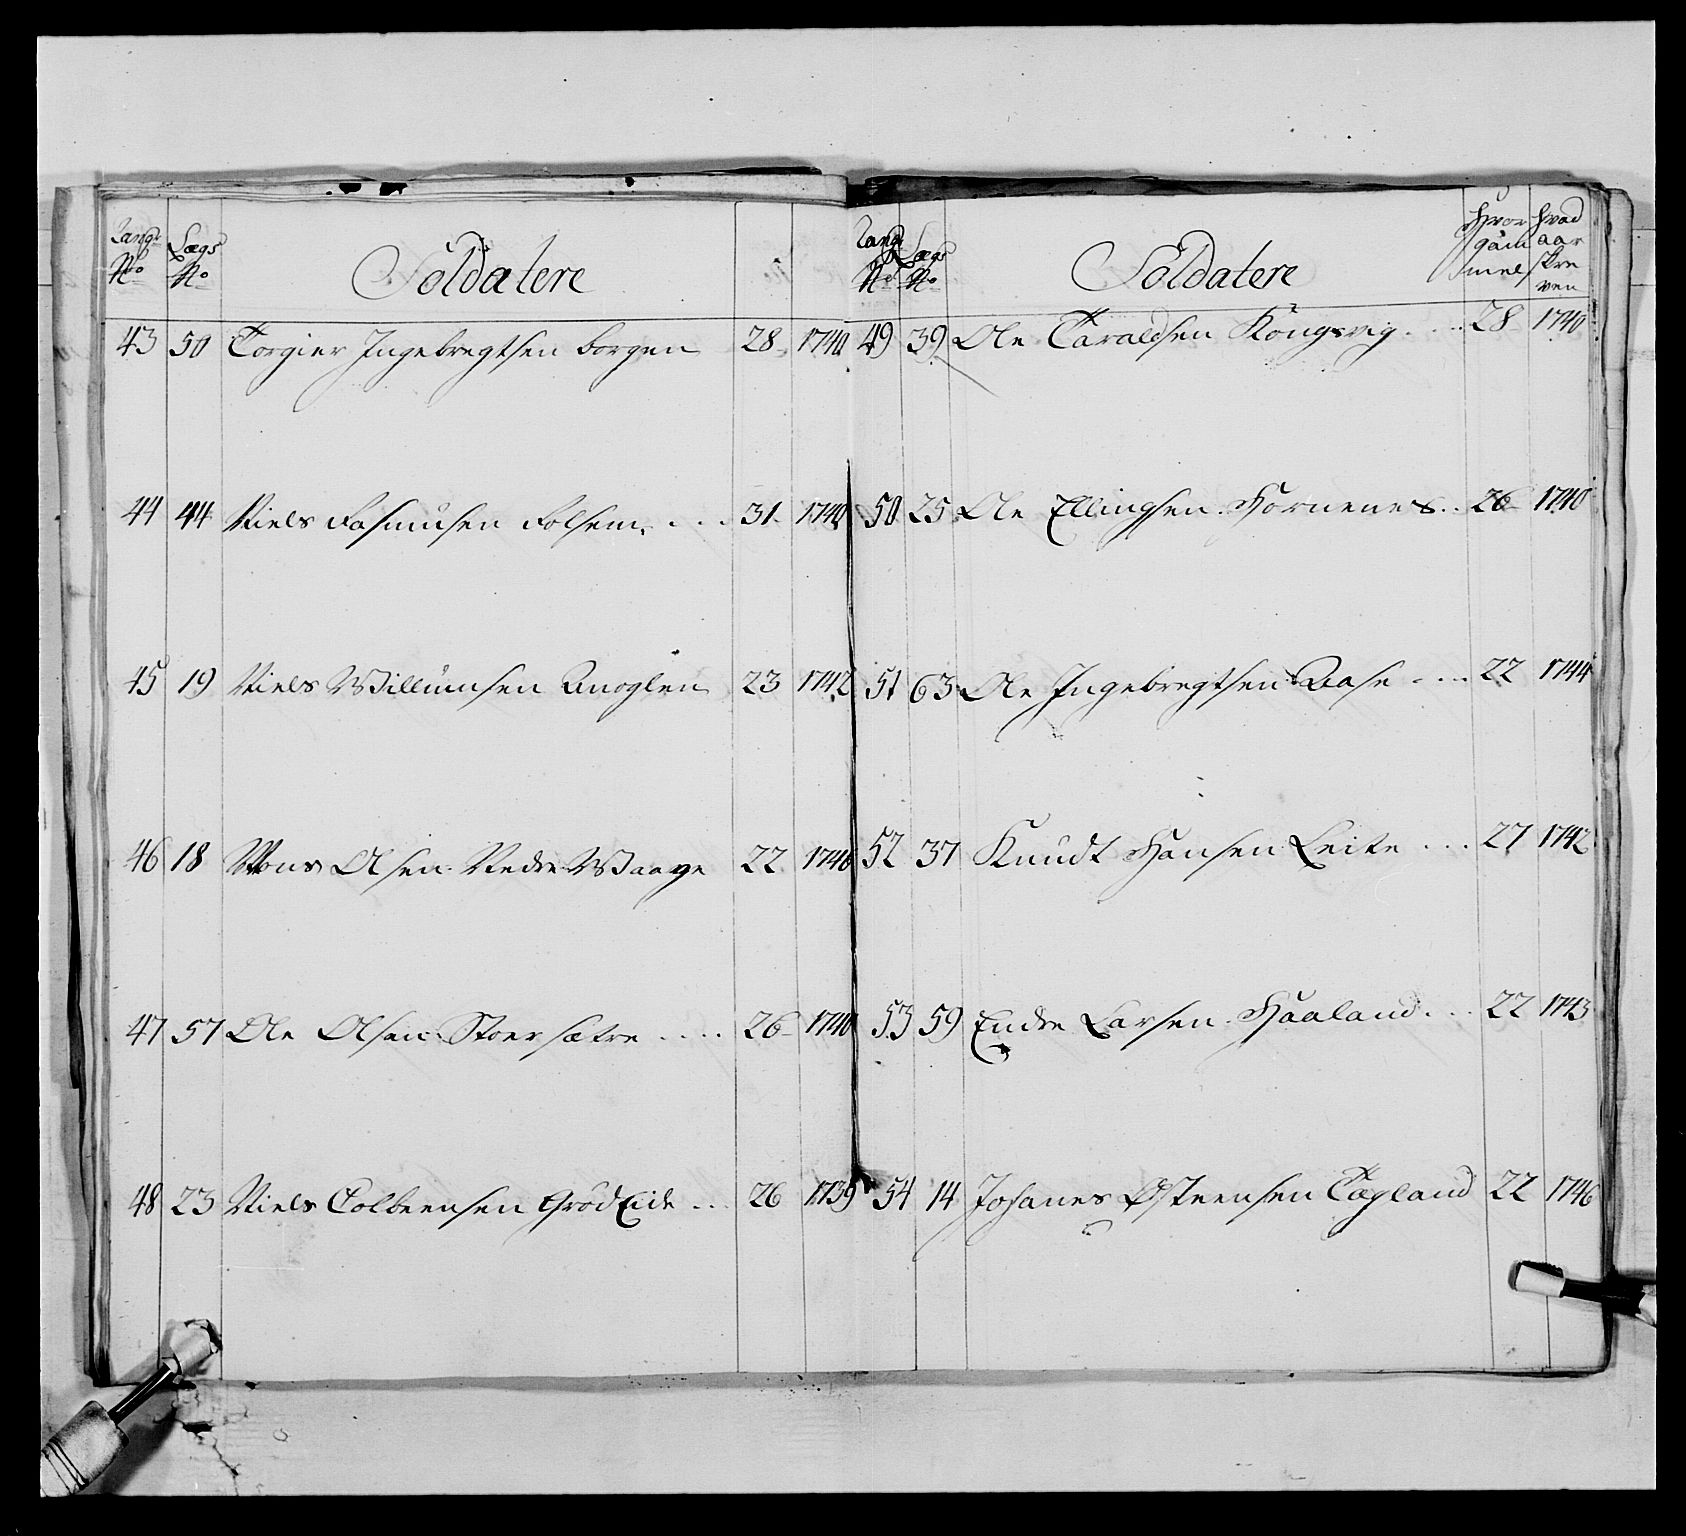 Rangs No Lægs No Soldatere
43 50 Torgier Ingebregtsen Borgen 28 1740
44 44 Niels Rasmusen Folsem 31 1740
45 19 Niels Willumsen 23 1742
46 18 Mons Olsen Nedre Waage 22 1746
47 57 Ole Olsen Stoersætre 26 1740
48 23 Niels Tolbeensen GrødEide 26 1739
Rangs No Lægs No Soldatere Hvor gammel Hvad aar skreven
49 39 Ole Taraldsen Kongsvig 28 1740
50 25 Ole Ellingsen Hornenes 26 1740
51 63 Ole Ingebregtsen Aase 22 1744
52 37 Knudt Hansen Leite 27 1742
53 59 Endre Larsen Haaland 22 1743
54 14 Johanes Østeensen Tegland 22 1746